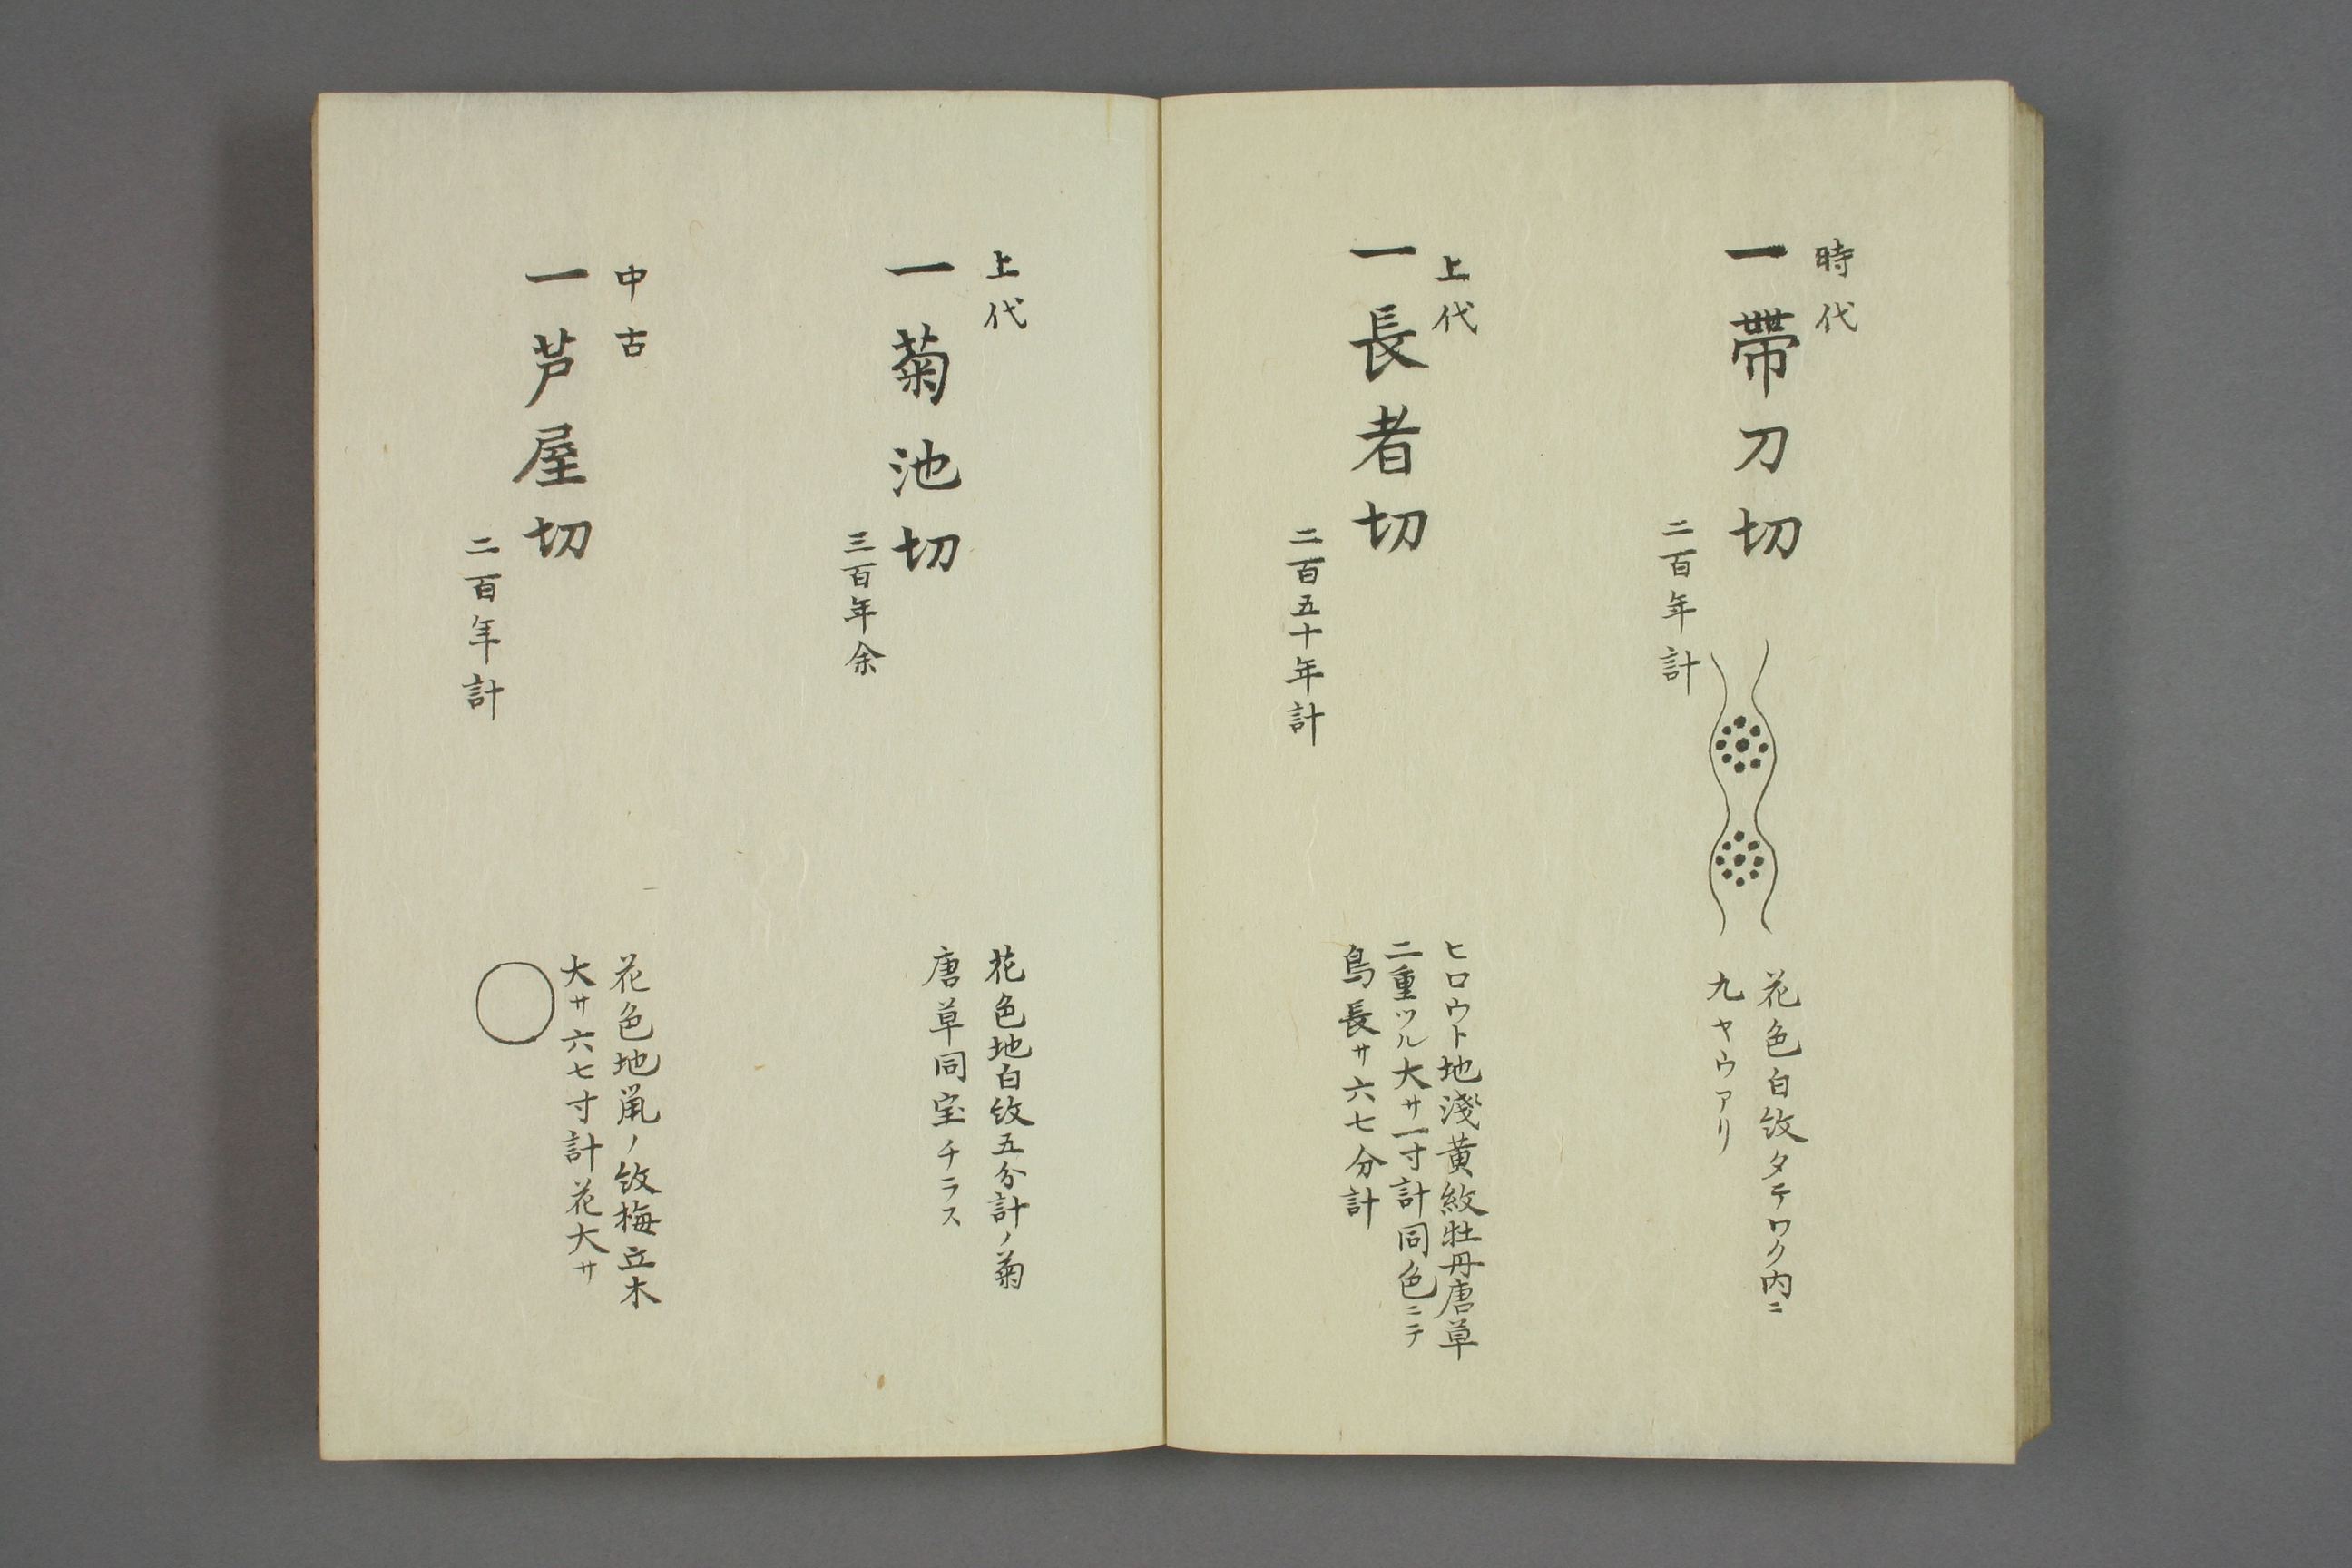 時代
一帶刀切
二百年計
花色白紋タテワク内ニ
九ヤウアリ
上代
一長者切
二百五十年計
ヒロウト地淺黄紋牡丹唐草
二重ツル大サ一寸計同色ニテ
鳥長サ六七分計
上代
一菊池切
三百年余
花色地白紋五分計ノ菊
唐草同宝チラス
中古
一芦屋切
二百年計
花色地嵐ノ紋梅立木
大サ六七寸計花大サ